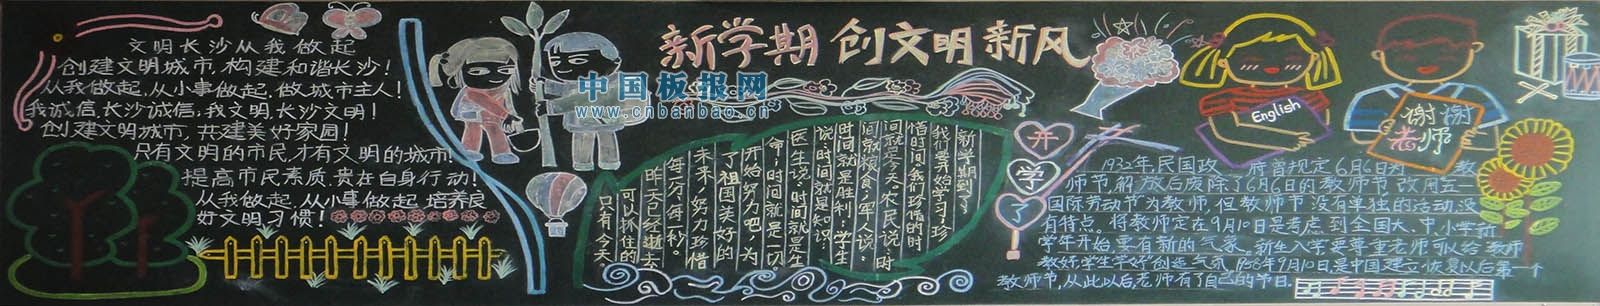 新学期 创文明 新风
文明长沙从我做起
创建文明城市,构建和谐长沙!
从我做起,从小事做起,做城市主人!
我诚信,长沙诚信;我文明,长沙文明!
创建文明城市,共建美好家园!
只有文明的市民,才有文明的城市!
提高市民素质,贵在自身行动!
从我做起,从小事做起,培养良
好文明习惯!
中国板报网
www.cnbanbao.cn
新学期到了,
我们要开始学习,珍
惜时间,我们珍惜的时
间就是冬天。农民说:时
间就粮食,军人说:
时间就是胜利,学生
说:时间就是知识;
医生说:时间就是生
命;时间就是一切。
开始努力吧,为
了祖国美好的
未来,努力珍惜
每一分,每一秒。
昨天已经逝去
可以抓住的
只有今天
开
学
了
English
谢谢
老师
1932年,民国政府曾规定6月6日为教
师节,解放后废除了6月6日的教师节,改用五一
国际劳动节为教师,但教师节没有单独的活动,没
有特点。将教师定在9月10日是考虑到全国大、中、小学新
学年开始,要有新的气象。新生入学,要尊重老师可以给教师
教好,学生学好创造气氛
9月10日是中国建立恢复以后第一个
教师节,从此以后,老师有了自己的节日。